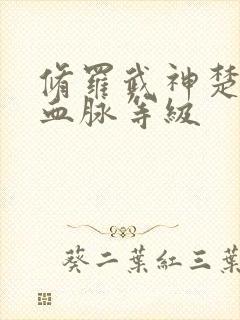 脩羅武神楚
血脉等級
葵二葉紅三葉